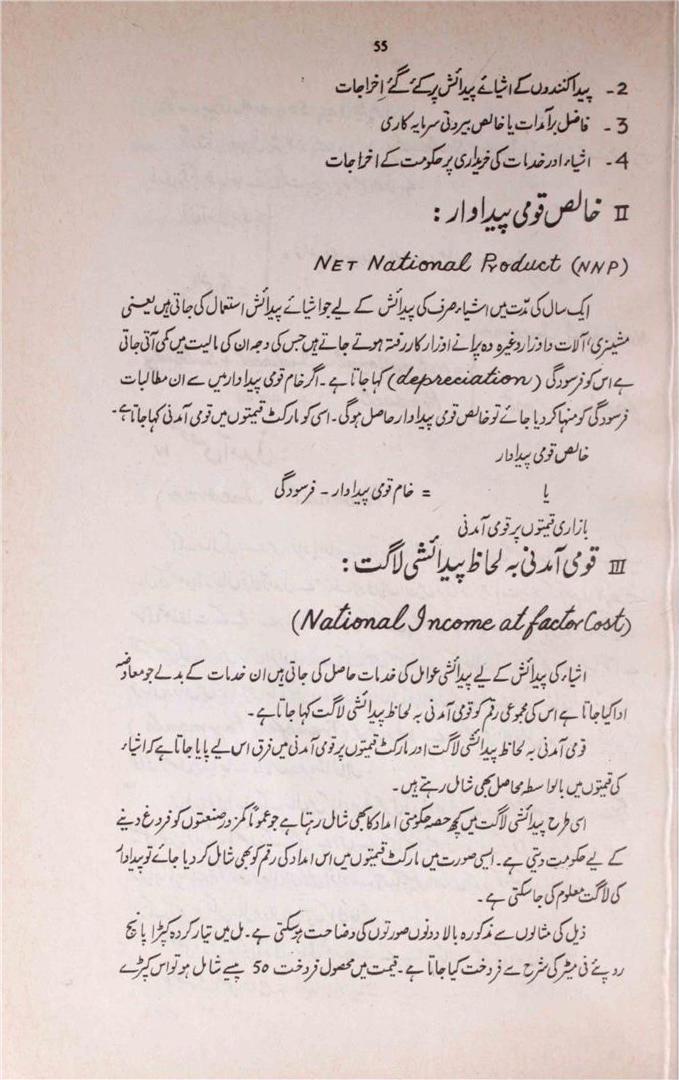 55
2۔ پیدا کنندوں کے اشیائے پیدائش پر کئے گئے اخراجات
3۔ فاضل برآمدات یا خالص بیرونی سرمایہ کاری
4۔ اشیاء اور خدمات کی خریداری پر حکومت کے اخراجات
II خالص قومی پیداوار :
NET National Product (NNP)
ایک سال کی مدّت میں اشیاء صرف کی پیدائش کے لیے جو اشیائے پیدائش استعمال کی جاتی ہیں یعنی
مشینری، آلات و اوزار وغیرہ وہ پرانے اور از کار رفتہ ہوتے جاتے ہیں جس کی وجہ ان کی مالیت میں کمی آتی جاتی
ہے اس کو فرسودگی (depreciation) کہا جاتا ہے۔ اگر خام قومی پیداوار میں سے ان مطالبات
فرسودگی کو منہا کر دیا جائے تو خالص قومی پیداوار حاصل ہوگی۔ اسی کو مارکٹ قیمتوں میں قومی آمدنی کہا جاتا ہے۔
خالص قومی پیداوار
یا = خام قومی پیداوار - فرسودگی
بازاری قیمتوں پر قومی آمدنی
III قومی آمدنی بہ لحاظ پیدائشی لاگت :
(National Income at factor Cost)
اشیاء کی پیدائش کے لیے پیدائشی عوامل کی خدمات حاصل کی جاتی ہیں ان خدمات کے بدلے جو معاوضہ
ادا کیا جاتا ہے اس کی مجموعی رقم کو قومی آمدنی بہ لحاظ پیدائشی لاگت کہا جاتا ہے۔
قومی آمدنی بہ لحاظ پیدائشی لاگت اور مارکٹ قیمتوں پر قومی آمدنی میں فرق اس لیے پایا جاتا ہے کہ اشیاء
کی قیمتوں میں بالواسطہ محاصل بھی شامل رہتے ہیں۔
اسی طرح پیدائشی لاگت میں کچھ حصہ حکومتی امداد کا بھی شامل رہتا ہے جو عموماً کمزور صنعتوں کو فروغ دینے
کے لیے حکومت دیتی ہے۔ ایسی صورت میں مارکٹ قیمتوں میں اس امداد کی رقم کو بھی شامل کر دیا جائے تو پیداوار
کی لاگت معلوم کی جاسکتی ہے۔
ذیل کی مثالوں سے مذکورہ بالا دونوں صورتوں کی وضاحت ہوسکتی ہے۔ مل میں تیار کردہ کپڑا پانچ
روپئے فی میٹر کی شرح سے فروخت کیا جاتا ہے۔ قیمت میں محصول فروخت 50 پیسے شامل ہو تو اس کپڑے